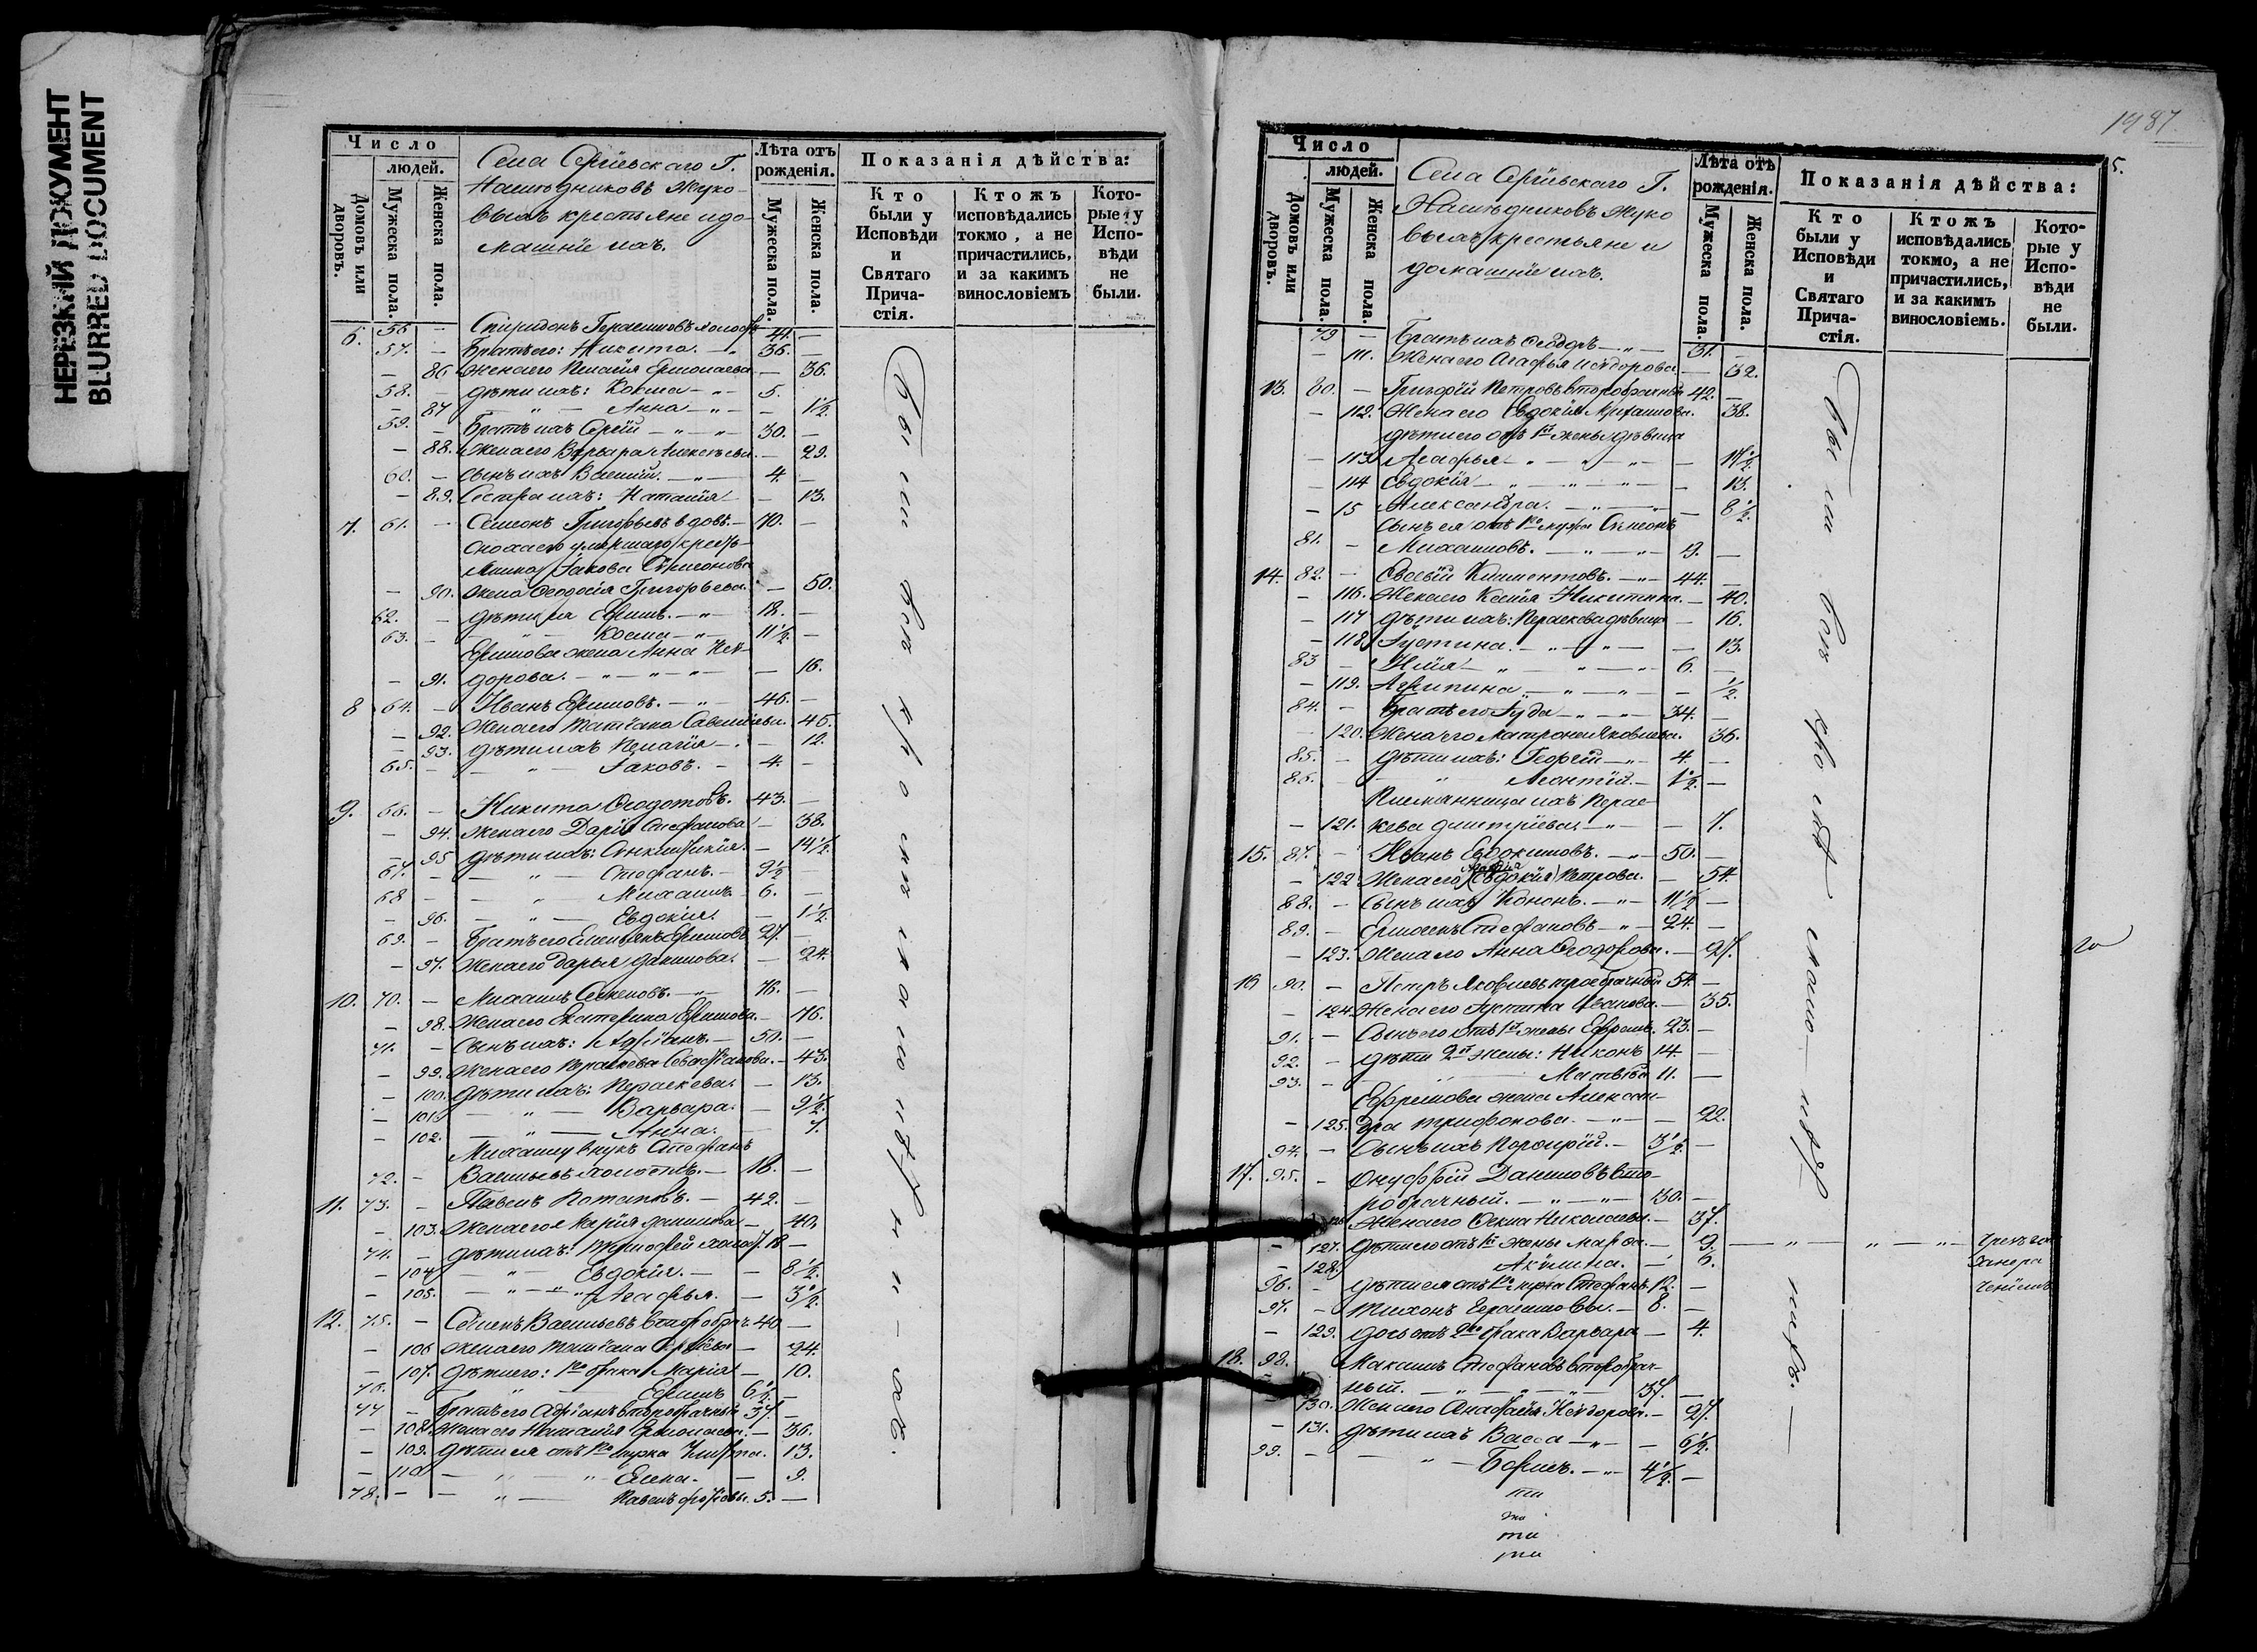 НЕРЕЗКИЙ ДОКУМЕНТ
BLURRED DOCUMENT
Число
людей.
Домовъ или дворовъ.
Мужеска пола.
Женска пола.
Села Сергіевскаго Г.
Наслѣдниковъ Жуко-
выхъ крестьяне и до-
машніе ихъ.
Лѣта отъ рожденія.
Мужеска пола.
Женска пола.
Показанія дѣйства:
Кто были у Исповѣди и Святаго Причастія.
Ктожъ исповѣдались токмо, а не причастились, и за какимъ винословіемъ
Которые у Исповѣди не были.
6. 56 - Спиридонъ Герасимовъ холост 41. -
57. - Братъ его: Никита. - 36. -
- 86 Жена его Пелагія Ермолаева - 36.
58. - дѣти ихъ: Козма - " - 5.
- 87 - " - Анна - " - - 1½
59. - Братъ ихъ Сергій - " - " - 30. -
- 88. Жена его Варвара Алексѣева. - 29.
60. - Сынъ ихъ Василій. - " - 4. -
- 89. Сестра ихъ: Наталія - - 13.
7. 61. - Симеонъ Григорьевъ вдовъ. - 70. -
Сноха его умершаго крестья-
нина Іакова Симеонова
- 90. жена Ѳеодосія Григорьева. - 50.
62. - дѣти ея Ефимъ. - " - 18. -
63. - - " - Козма - " - 11½ -
Ефимова жена Анна Иси-
- 91. дорова. - " - " - " - - 16.
8 64. - Иванъ Ефимовъ. - " - 46. -
- 92. Жена его Татіана Савельева. 45.
- 93. дѣти ихъ Пелагія - . - 12.
65. - - " - Іаковъ. - 4. -
9. 66. - Никита Ѳедотовъ. 43. -
- 94. Жена его Дарія Стефанова - 38.
- 95 дѣти ихъ: Синклитикія. - 14½.
67. - - " - Стефанъ. - 9½
68 - - " - Михаилъ - 6. -
- 96. - " - Евдокія. - 1½.
69. - Братъ его Емельянъ Ефимовъ 27. -
- 97. Жена его Дарья Данилова. - 24.
10. 70. - Михаилъ Семеновъ. - " - 76. -
- 98. Жена его Екатерина Ефимова. - 76.
71. - Сынъ ихъ: Адріанъ. - 50. -
- 99. Жена его Параскева Севастіанова. - 43.
- 100. дѣти ихъ: Параскева. - 13.
- 101. - " - Варвара. - 9½.
- 102. - " - Анна. - 7.
Михаилу внукъ Стефанъ
72. - Васильевъ холостъ. - 18. -
11. 73. - Павелъ Потаповъ. - 42. -
- 103. Жена его Марія Данилова - 40.
74. - дѣти ихъ: Тимофей холост. 18 -
- 104 - " - Евдокія. - - 8½.
- 105. - " - " Агафья. - 3½.
12. 75. - Семенъ Васильевъ второбрач. 40 -
- 106 Жена его Татіана Сергѣева - 24.
- 107. дѣти его: 1го брака Марія - 10.
76. - " - Ефимъ 6½. -
77 - Братъ его Адріанъ второбрачный 37. -
- 108. Жена его Наталія Ермолаева. - 36.
- 109. дѣти ея отъ 1го мужа Улита. - 13.
- 110 - " - " - Елена. - 9.
78. - - " - Павелъ 5. -
Были все
Число
людей.
Домовъ или дворовъ.
Мужеска пола.
Женска пола.
Села Сергіевскаго Г.
Наслѣдниковъ Жуко
выхъ крестьяне и
домашніе ихъ.
Лѣта отъ рожденія.
Мужеска пола.
Женска пола.
Показанія дѣйства:
Кто были у Исповѣди и Святаго Причастія.
Ктожъ исповѣдались токмо, а не причастились, и за какимъ винословіемъ.
Которые у Исповѣди не были.
1987
5.
79 - Братъ ихъ Ѳеодоръ - " - 31. -
- 111. Жена его Агафья Исидорова - 32.
13. 80. - Григорій Петровъ второбрачный 42. -
- 112. Жена его Евдокія Михаилова. 38.
дѣти его отъ 1й жены дѣвица
- 113 Агафья - " - " - " - - 17½.
- 114 Евдокія - " - " - " - - 13.
- 15 Александра. - " - " - - 8½.
Сынъ ея отъ 1го мужа Симеонъ
81. - Михаиловъ. - " - " - 19. -
14. 82. - Савелій Климентовъ. - " - 44. -
- 116. Жена его Ксенія Никитина. - 40.
- 117 дѣти ихъ: Параскева дѣвица - 16.
- 118 Іустина. - " - " - - 13.
83 - Илія - " - " - " - 6. -
- 119. Агрипина. - " - " - - ½
84. - Братъ его Іуда - " - " - 34. -
- 120. Жена его Матрона Яковлева. 36.
85. - дѣти ихъ: Георгій - " - 4. -
86. - " Леонтій. - 1½. -
Племянница ихъ Парас-
- 121. кева Дмитріева. - " - - 7.
15. 87. - Иванъ Евдокимовъ. - " - 50. -
- 122 Жена его (Евдокія) Петрова. - 54.
88. - Сынъ ихъ Кононъ. - " - 11½ -
89. - Ермолъ Стефановъ - " - 24. -
- 123. Жена его Анна Ѳеодорова. - 27.
16 90. - Петръ Яковлевъ троебрачный 54. -
- 124. Жена его Іустина Иванова. - 35.
91. - Сынъ его отъ 1й жены Ефремъ. 23. -
92. - дѣти 2й жены: Никонъ 14. -
93. - " Матвѣй 11. -
Ефремова жена Алексан-
- 125. дра Трифонова. - " - - 22.
94. - Сынъ ихъ Порфирій. - 3½. -
17. 95. - Онуфрій Даниловъ вто-
робрачный. - " - " - 30. -
126 Жена его Ѳекла Николаева. - 37.
- 127. Дѣти его отъ 1й жены Марѳа. - 9. - " - " - " -
- 128. Акилина. - 6.
96. - дѣти ея отъ 1го мужа Стефанъ 12. -
97. - Тихонъ Герасимовы. - 8. -
- 129. дочь отъ 2го брака Варвара - 4.
18. 98. Максимъ Стефановъ второбрач-
ный. - " - " - " - 37. -
- 130. Жена его Анастасія Исидорова. - 27.
- 131. дѣти ихъ Васса - " - - 6½.
99. - - " - Борисъ. - " - 4½. -